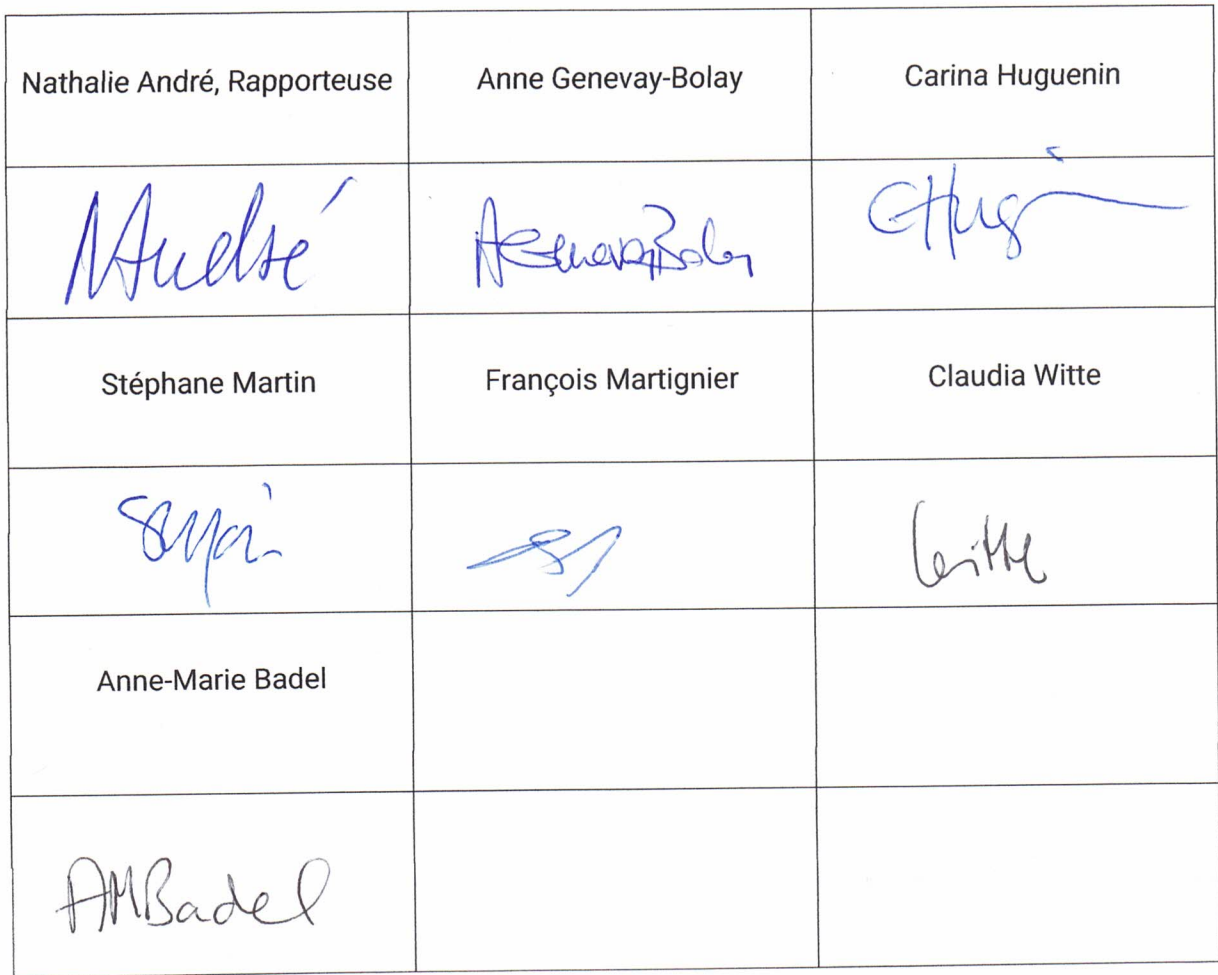 Nathalie André, Rapporteuse
Anne Genevay-Bolay
Carina Huguenin
NAndré
AGenevayBolay
CHug
Stéphane Martin
François Martignier
Claudia Witte
Witte
Anne-Marie Badel
AMBadel